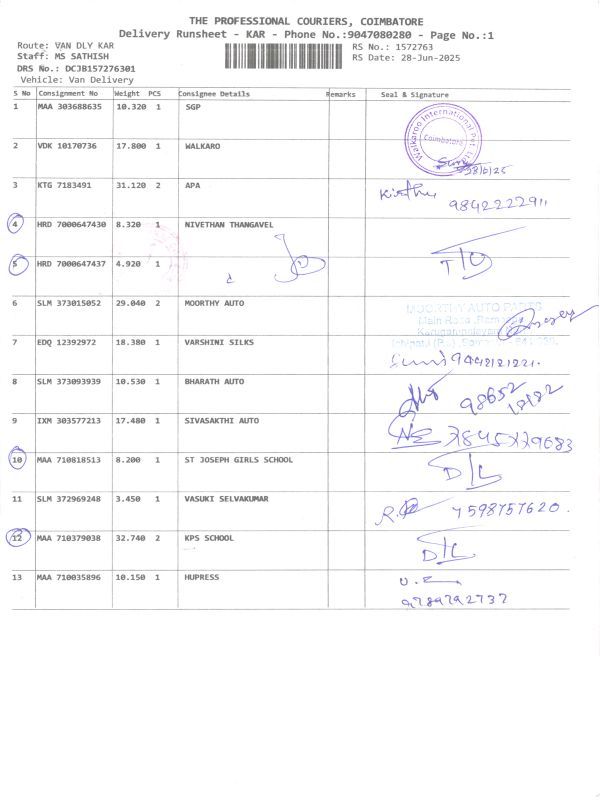 THE PROFESSIONAL COURIERS, COIMBATORE
Delivery Runsheet - KAR - Phone No.:9047080280 - Page No.:1
Route: VAN DLY KAR
Staff: MS SATHISH
DRS No.: DCJB157276301
Vehicle: Van Delivery
RS No.: 1572763
RS Date: 28-Jun-2025
S No Consignment No Weight PCS Consignee Details Remarks Seal & Signature
1 MAA 303688635 10.320 1 SGP
Walkaroo International Pvt. Ltd.
Coimbatore
2 VDK 10170736 17.800 1 WALKARO
3 KTG 7183491 31.120 2 APA
9842222911
4 HRD 7000647430 8.320 1 NIVETHAN THANGAVEL
5 HRD 7000647437 4.920 1
6 SLM 373015052 29.040 2 MOORTHY AUTO
MOORTHY AUTO PARTS
7 EDQ 12392972 18.380 1 VARSHINI SILKS
8 SLM 373093939 10.530 1 BHARATH AUTO
98652
18182
9 IXM 303577213 17.480 1 SIVASAKTHI AUTO
10 MAA 710818513 8.200 1 ST JOSEPH GIRLS SCHOOL
D/L
11 SLM 372969248 3.450 1 VASUKI SELVAKUMAR
7598757620
12 MAA 710379038 32.740 2 KPS SCHOOL
D/L
13 MAA 710035896 10.150 1 HUPRESS
9789792737